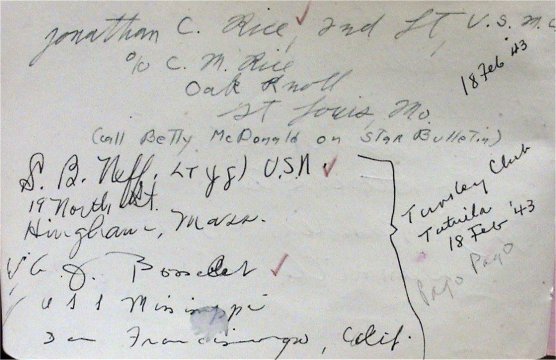 Jonathan C. Rice, 2nd Lt, U.S.M.C
18 Feb '43
c/o C. M. Rice
Oak Knoll
St Louis, Mo.
(call Betty McDonald on Star Bulletin)
S. B. Neff, Lt (jg) U.S.N
19 North St.
Hingham, Mass.
Tutuila
18 Feb '43
Pago Pago
G. J.
USS Mississippi
San Calif.